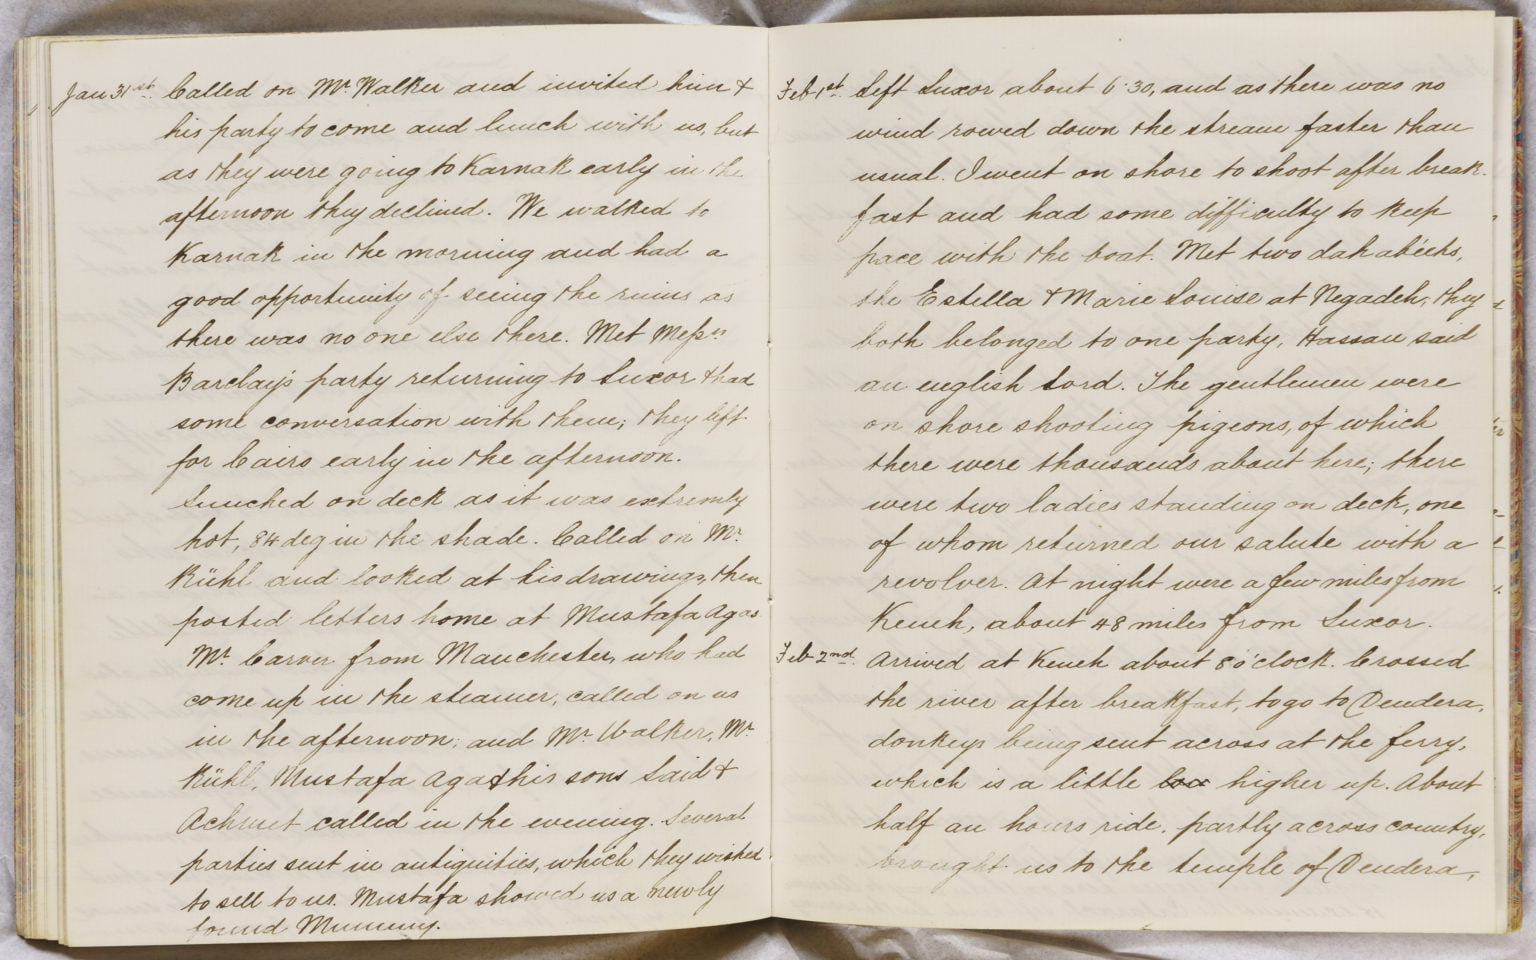 Jan 31st. Called on Mr. Walker and invited him &
his party to come and lunch with us, but
as they were going to Karnak early in the
afternoon they declined. We walked to
Karnak in the morning and had a
good opportunity of seeing the ruins as
there was no one else there. Met Messrs
Barclay's party returning to Luxor & had
some conversation with them; they left
for Cairo early in the afternoon.
Lunched on deck as it was extremly
hot, 84 deg in the shade. Called on Mr.
Rühl and looked at his drawings, then
posted letters home at Mustafa Agas.
Mr. Carver from Manchester, who had
come up in the steamer, called on us
in the afternoon; and Mr. Walker, Mr.
Rühl, Mustafa Aga & his sons Said &
Achmet called in the evening. Several
parties sent in antiquities, which they wished
to sell to us. Mustafa showed us a newly
found Mummy.
Feb 1st. Left Luxor about 6.30, and as there was no
wind rowed down the stream faster than
usual. I went on shore to shoot after break-
fast and had some difficulty to keep
pace with the boat. Met two dahabéehs,
the Estella & Marie Louise at Negadeh, they
both belonged to one party, Hassan said
an english Lord. The gentlemen were
on shore shooting pigeons, of which
there were thousands about here; there
were two ladies standing on deck, one
of whom returned our salute with a
revolver. At night were a few miles from
Keneh, about 48 miles from Luxor.
Feb 2nd. Arrived at Keneh about 8 o'clock. Crossed
the river after breakfast, to go to Dendera,
donkeys being sent across at the ferry,
which is a little low higher up. About
half an hours ride, partly across country,
brought us to the temple of Dendera,